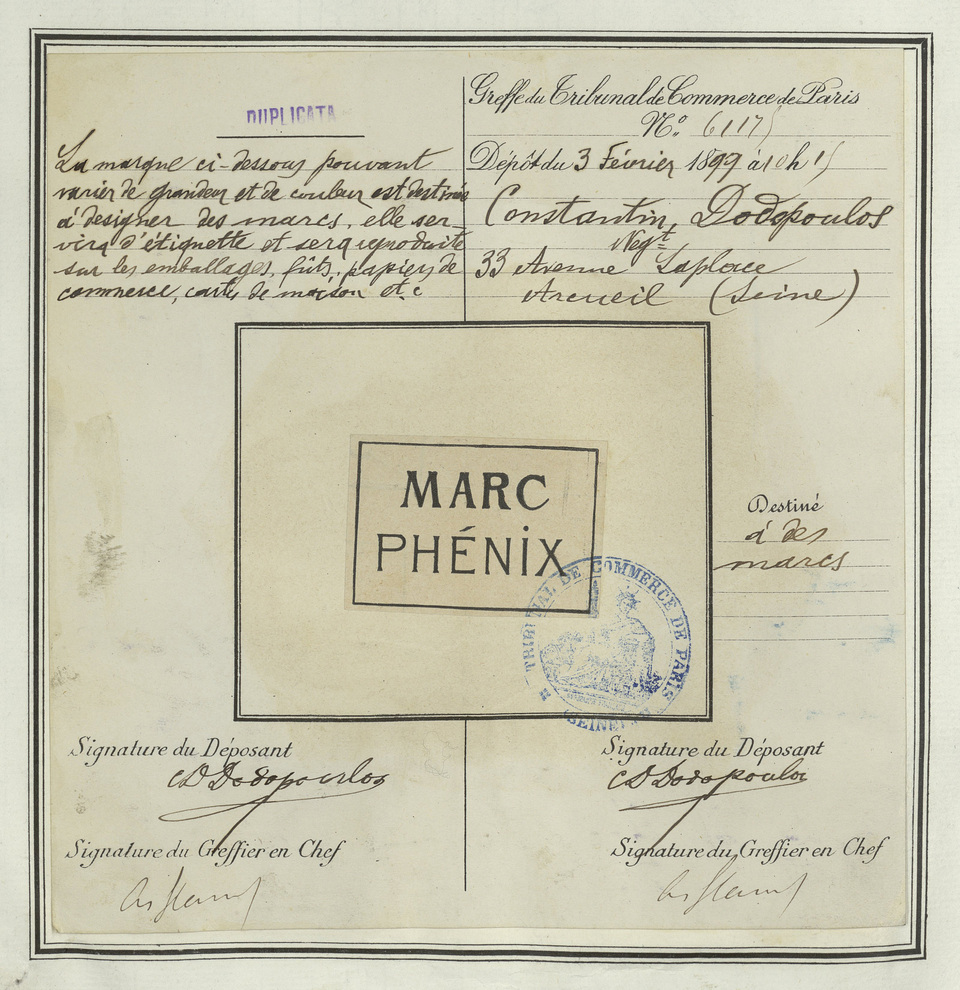 DUPLICATA
La marque ci-dessous pouvant
varier de grandeur et de couleur est destinée
à designer des marcs, elle ser-
vira d'étiquette et sera reproduite
sur les emballages, fûts, papiers de
commerce, cartes de maison etc
Greffe du Tribunal de Commerce de Paris
N.º 61175
Dépôt du 3 Février 1899 à 10 h 1/
Constantin Dodopoulos
Negt
33 Avenue Laplace
Arcueil (Seine)
MARC
PHÉNIX
TRIBUNAL DE COMMERCE DE PARIS
(SEINE)
Destiné
à des
marcs
Signature du Déposant
CD Dodopoulos
Signature du Greffier en Chef
Signature du Déposant
CD Dodopoulos
Signature du Greffier en Chef